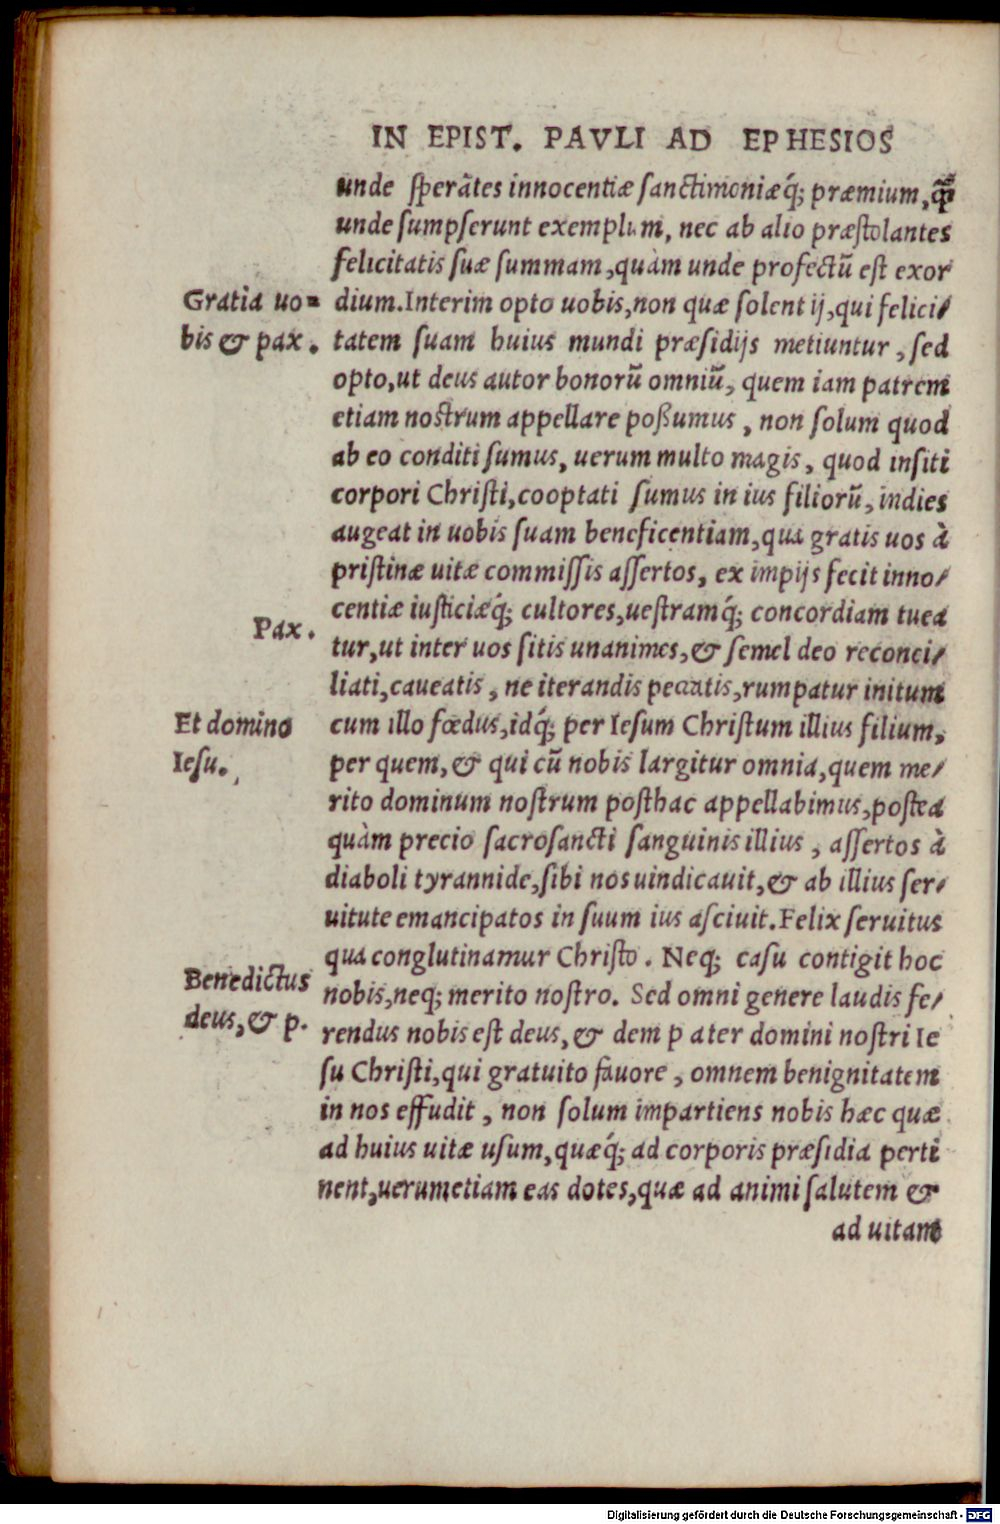 IN EPIST. PAVLI AD EPHESIOS
unde sperātes innocentiæ sanctimoniæq́; præmium, q̃
unde sumpserunt exemplum, nec ab alio præstolantes
felicitatis suæ summam, quàm unde profectū est exor
Gratia uo=
bis & pax.
dium. Interim opto uobis, non quæ solent ij, qui felici/
tatem suam huius mundi præsidijs metiuntur, sed
opto, ut deus autor bonorū omniū, quem iam patrem
etiam nostrum appellare poßumus, non solum quod
ab eo conditi sumus, uerum multo magis, quod insiti
corpori Christi, cooptati sumus in ius filiorū, indies
augeat in uobis suam beneficentiam, qua gratis uos à
pristinæ uitæ commissis assertos, ex impijs fecit inno/
centiæ iusticiæq́; cultores, uestramq́; concordiam tuea
Pax.
tur, ut inter uos sitis unanimes, & semel deo reconci/
liati, caueatis, ne iterandis peccatis, rumpatur initum
Et domino
Iesu.
cum illo fœdus, idq́; per Iesum Christum illius filium,
per quem, & qui cū nobis largitur omnia, quem me/
rito dominum nostrum posthac appellabimus, postea
quàm precio sacrosancti sanguinis illius, assertos à
diaboli tyrannide, sibi nos uindicauit, & ab illius ser/
uitute emancipatos in suum ius asciuit. Felix seruitus
qua conglutinamur Christo. Neq; casu contigit hoc
Benedictus
deus, & p.
nobis, neq; merito nostro. Sed omni genere laudis fe/
rendus nobis est deus, & dem p ater domini nostri Ie
su Christi, qui gratuito fauore, omnem benignitatem
in nos effudit, non solum impartiens nobis hæc quæ
ad huius uitæ usum, quæq́; ad corporis præsidia perti
nent, uerumetiam eas dotes, quæ ad animi salutem &
ad uitam
Digitalisierung gefördert durch die Deutsche Forschungsgemeinschaft - DFG